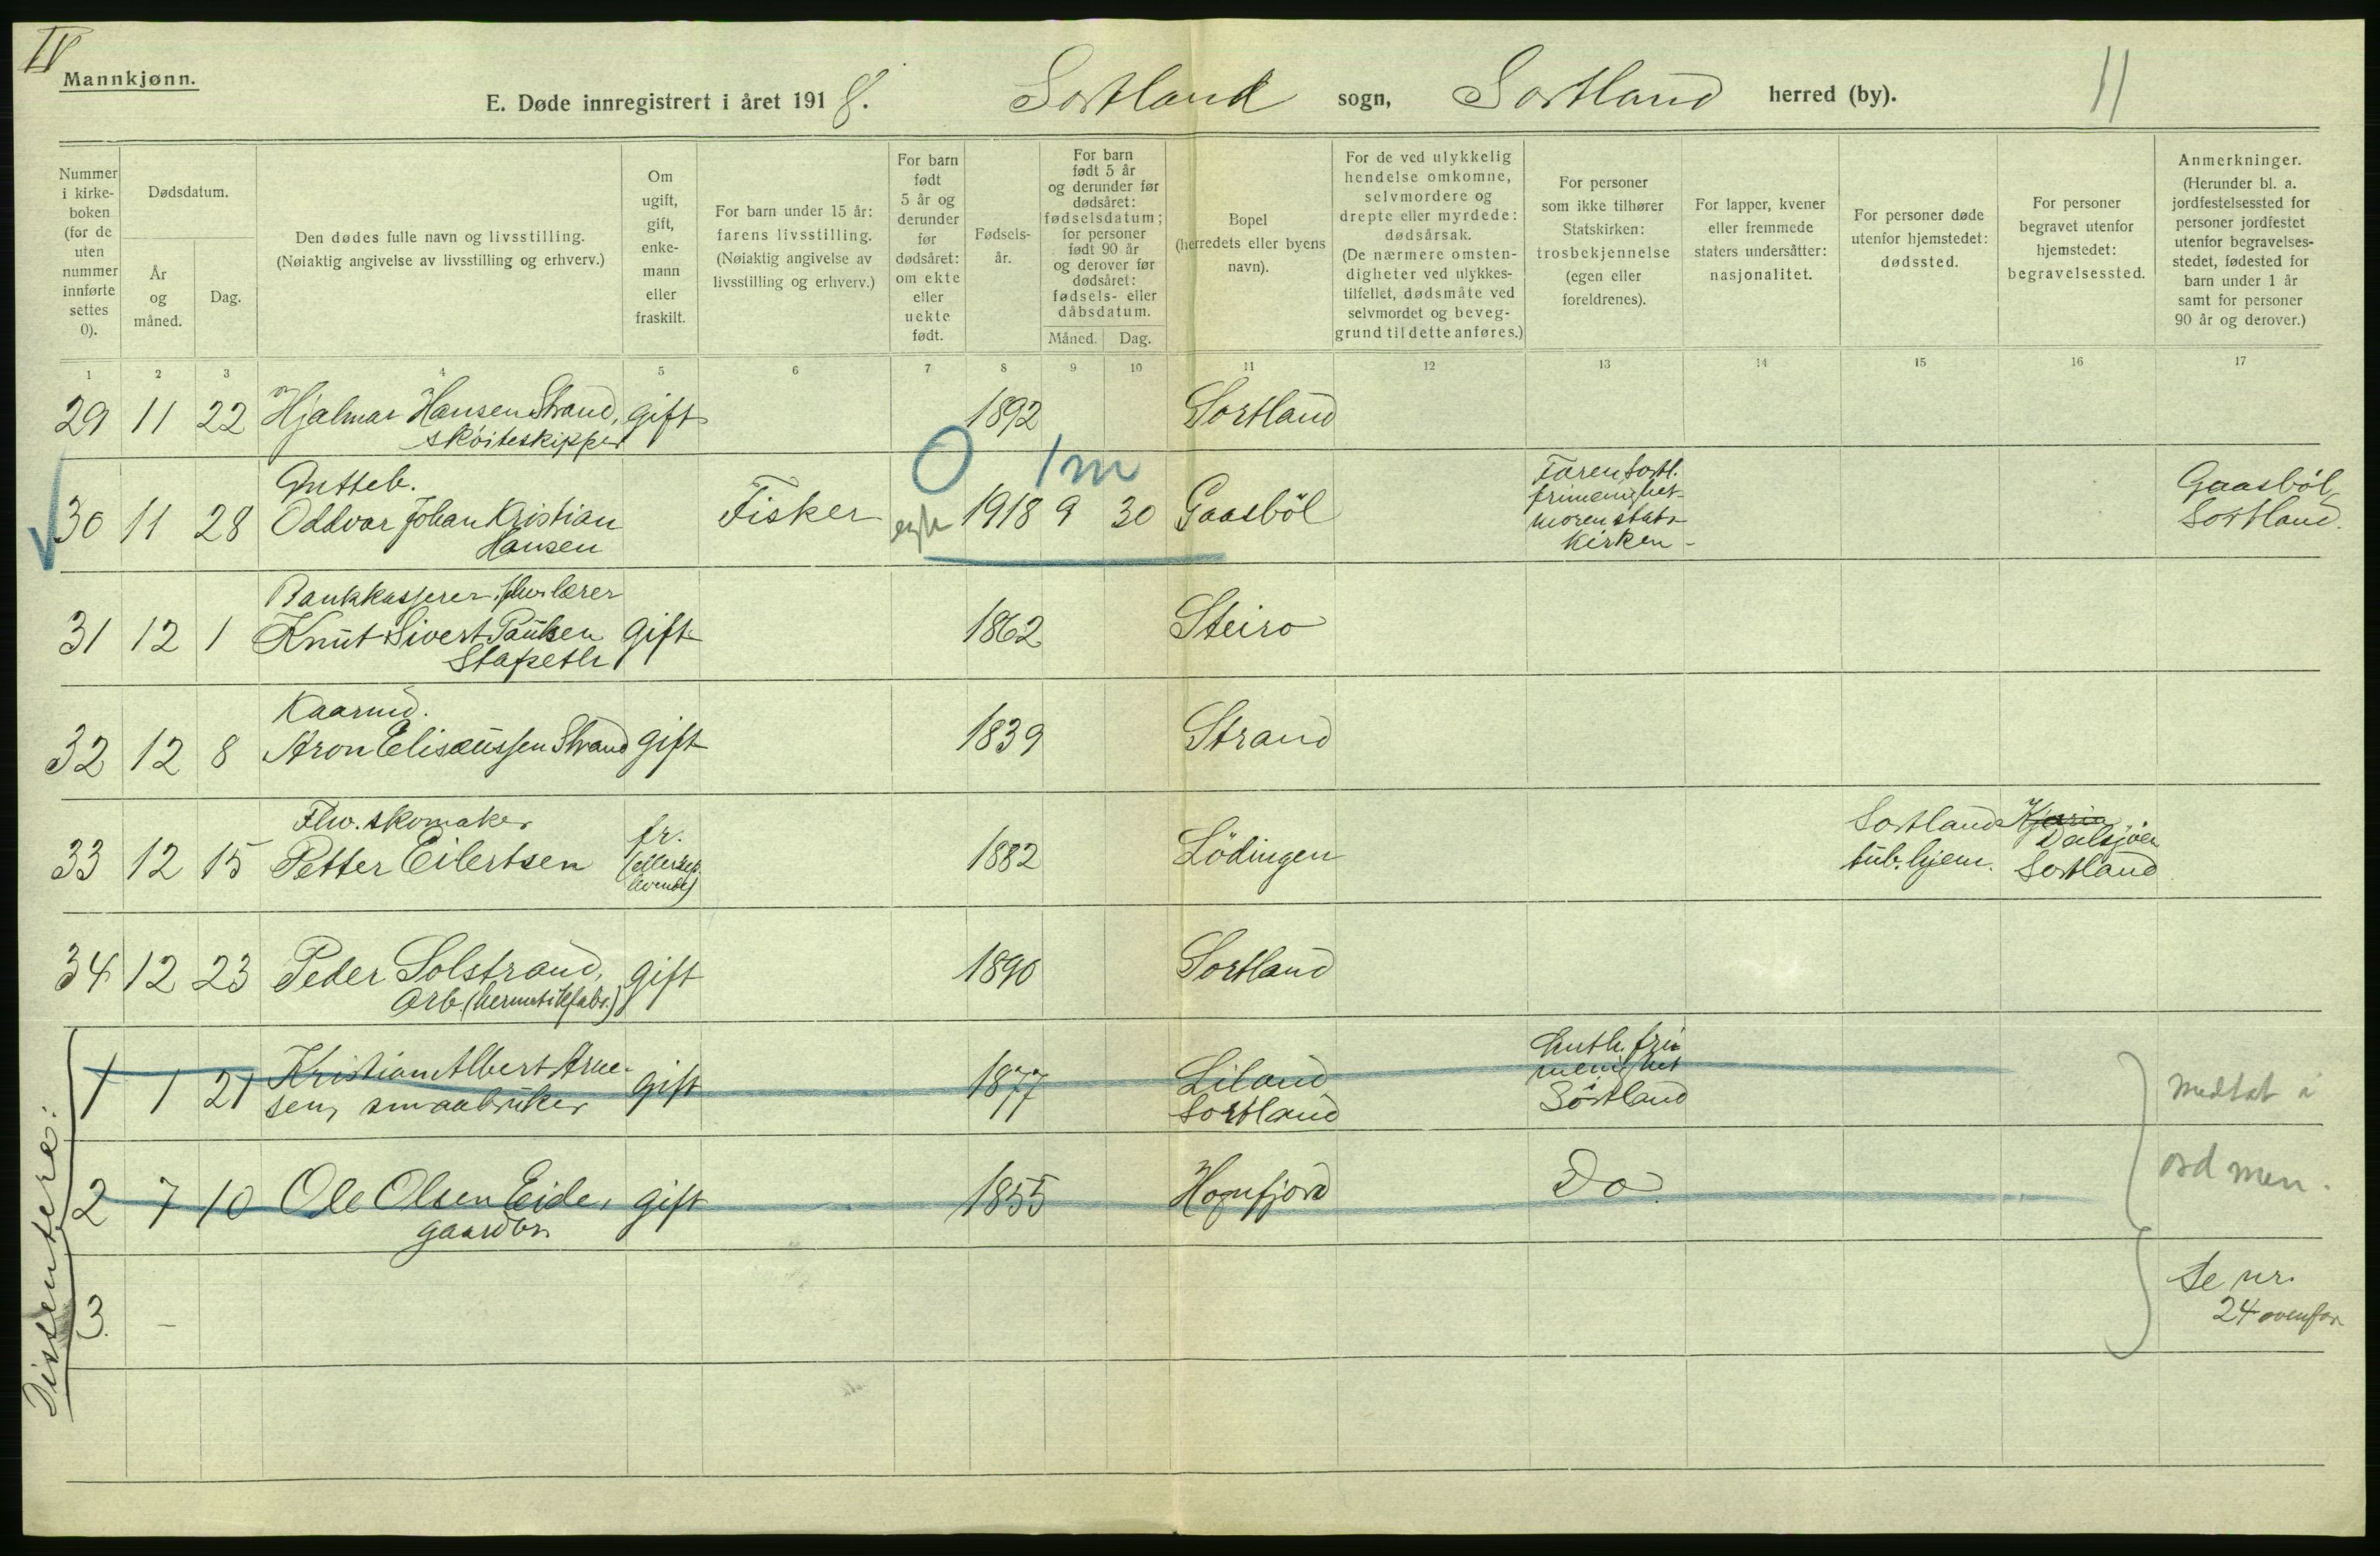 IV
Mannkjønn.
E. Døde innregistrert i året 1918. Sortland sogn, Sortland herred (by). 11
Nummer i kirke-boken (for de uten nummer innførte settes 0).
Dødsdatum.
År og måned.
Dag.
Den dødes fulle navn og livsstilling.
(Nøiaktig angivelse av livsstilling og erhverv.)
Om ugift, gift, enke-mann eller fraskilt.
For barn under 15 år: farens livsstilling.
(Nøiaktig angivelse av livsstilling og erhverv.)
For barn født 5 år og derunder før dødsåret: om ekte eller uekte født.
Fødsels-år.
For barn født 5 år og derunder før dødsåret: fødselsdatum; for personer født 90 år og derover før dødsåret: fødsels- eller dåbsdatum.
Måned. Dag.
Bopel (herredets eller byens navn).
For de ved ulykkelig hendelse omkomne, selvmordere og drepte eller myrdede: dødsårsak.
(De nærmere omsten-digheter ved ulykkes-tilfellet, dødsmåte ved selvmordet og beveg-grund til dette anføres.)
For personer som ikke tilhører Statskirken: trosbekjennelse (egen eller foreldrenes).
For lapper, kvener eller fremmede staters undersåtter: nasjonalitet.
For personer døde utenfor hjemstedet: dødssted.
For personer begravet utenfor hjemstedet: begravelsessted.
Anmerkninger.
(Herunder bl. a. jordfestelsessted for personer jordfestet utenfor begravelses-stedet, fødested for barn under 1 år samt for personer 90 år og derover.)
1 2 3 4 5 6 7 8 9 10 11 12 13 14 15 16 17
29 11 22 Hjalmar Hansen Strand, gift 1892 Sortland
skøiteskipper
0 1 m
Gutteb.
30 11 28 Oddvar Johan Kristian Hansen Fisker egte 1918 9 30 Gaasböl Faren Sortl. frimenighet- moren stats- kirken - Gaasböl, Sortland.
Bankkasserer, fhv. lærer
31 12 1 Knut Sivert Paulsen Stafseth gift 1862 Steiro
Kaarmd.
32 12 8 Aron Elisæussen Strand gift 1839 Strand
Fhv. skomaker
33 12 15 Petter Eilertsen fr. (eller sep. levende) 1882 Lödingen Sortland tub. hjem. Dalsjöen Sortland
34 12 23 Peder Solstrand, gift 1890 Sortland
Arb. (hermetikfabr.)
Dissentere:
1 1 21 Kristian Albert Arne- gift 1877 Liland Sortland Luth. fri menighet Sortland
sen, smaabruker
Medtat i ord men.
2 7 10 Ole Olsen Eide, gift 1855 Hognfjord Do.
gaardbr.
3. — Se nr. 24 ovenfor